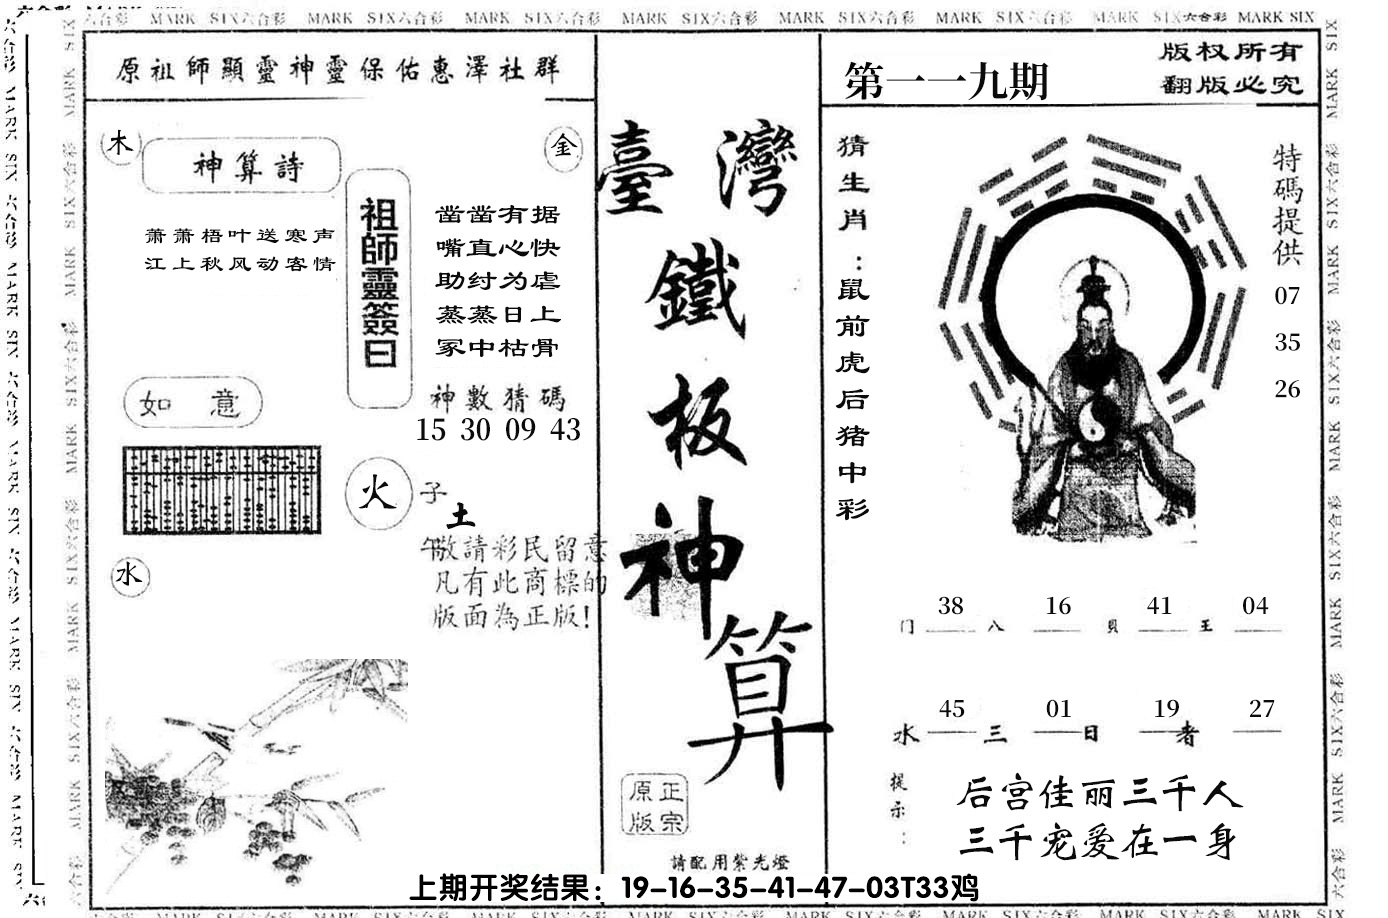 MARK SIX六合彩 MARK SIX六合彩 MARK SIX六合彩 MARK SIX六合彩 MARK SIX六合彩 MARK SIX六合彩 MARK SIX六合彩 MARK SIX
原祖師顯靈神靈保佑惠澤社群
木
神算詩
金
萧萧梧叶送寒声
江上秋风动客情
祖師靈簽曰
凿凿有据
嘴直心快
助纣为虐
蒸蒸日上
冢中枯骨
神數猜碼
15 30 09 43
如 意
火
子
土
午
水
敬請彩民留意
凡有此商標的
版面為正版!
臺灣
鐵
板
神
算
正宗
原版
請配用紫光燈
第一一九期
版权所有
翻版必究
猜生肖:鼠前虎后猪中彩
特碼提供
07
35
26
38 16 41 04
门 八 貝 王
45 01 19 27
水 三 日 者
提示:
后宫佳丽三千人
三千宠爱在一身
上期开奖结果：19-16-35-41-47-03T33鸡